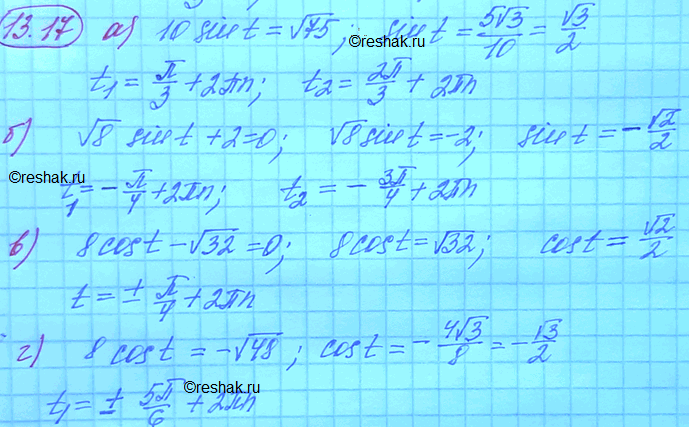 13.17 а) 10 sin t = √75; sin t = 5√3/10 = √3/2
©reshak.ru
t₁ = π/3 + 2πn; t₂ = 2π/3 + 2πn
б) √8 sin t + 2 = 0; √8 sin t = -2; sin t = -√2/2
©reshak.ru
t₁ = -π/4 + 2πn; t₂ = -3π/4 + 2πn
в) 8 cos t - √32 = 0; 8 cos t = √32; cos t = √2/2
t = ± π/4 + 2πn
г) 8 cos t = -√48; cos t = -4√3/8 = -√3/2
©reshak.ru
t₁ = ± 5π/6 + 2πn